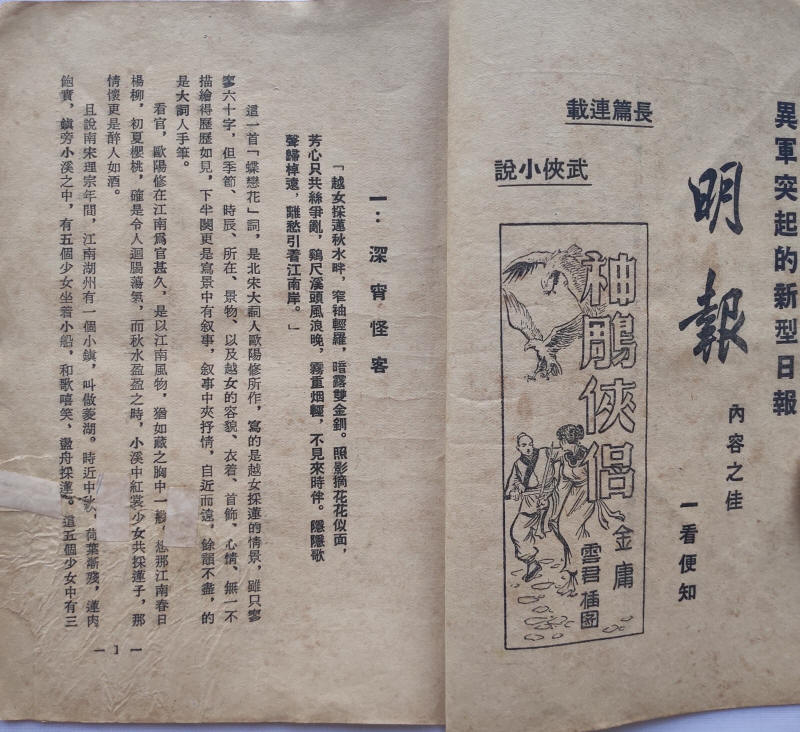 異軍突起的新型日報
明報
內容之佳
一看便知
長篇連載
武俠小說
神鵰俠侶
金庸
雲君插圖
一：深宵怪客
「越女採蓮秋水畔，窄袖輕羅，暗露雙金釧。照影摘花花似面，
芳心只共絲爭亂，鷄尺溪頭風浪晚，霧重烟輕，不見來時伴。隱隱歌
聲歸棹遠，離愁引着江南岸。」
這一首「蝶戀花」詞，是北宋大詞人歐陽修所作，寫的是越女採蓮的情景，雖只寥
寥六十字，但季節、時辰、所在、景物、以及越女的容貌、衣着、首飾、心情、無一不
描繪得歷歷如見，下半闋更是寫景中有叙事，叙事中夾抒情，自近而遠，餘韻不盡，的
是大詞人手筆。
看官，歐陽修在江南爲官甚久，是以江南風物，猶如藏之胸中一般，想那江南春日
楊柳，初夏櫻桃，確是令人迴腸蕩氣，而秋水盈盈之時，小溪中紅裳少女共採蓮子，那
情懷更是醉人如酒。
且說南宋理宗年間，江南湖州有一個小鎮，叫做菱湖。時近中秋、荷葉漸殘，蓮肉
飽實，鎮旁小溪之中，有五個少女坐着小船，和歌嘻笑，盪舟採蓮。這五個少女中有三
— 1 —